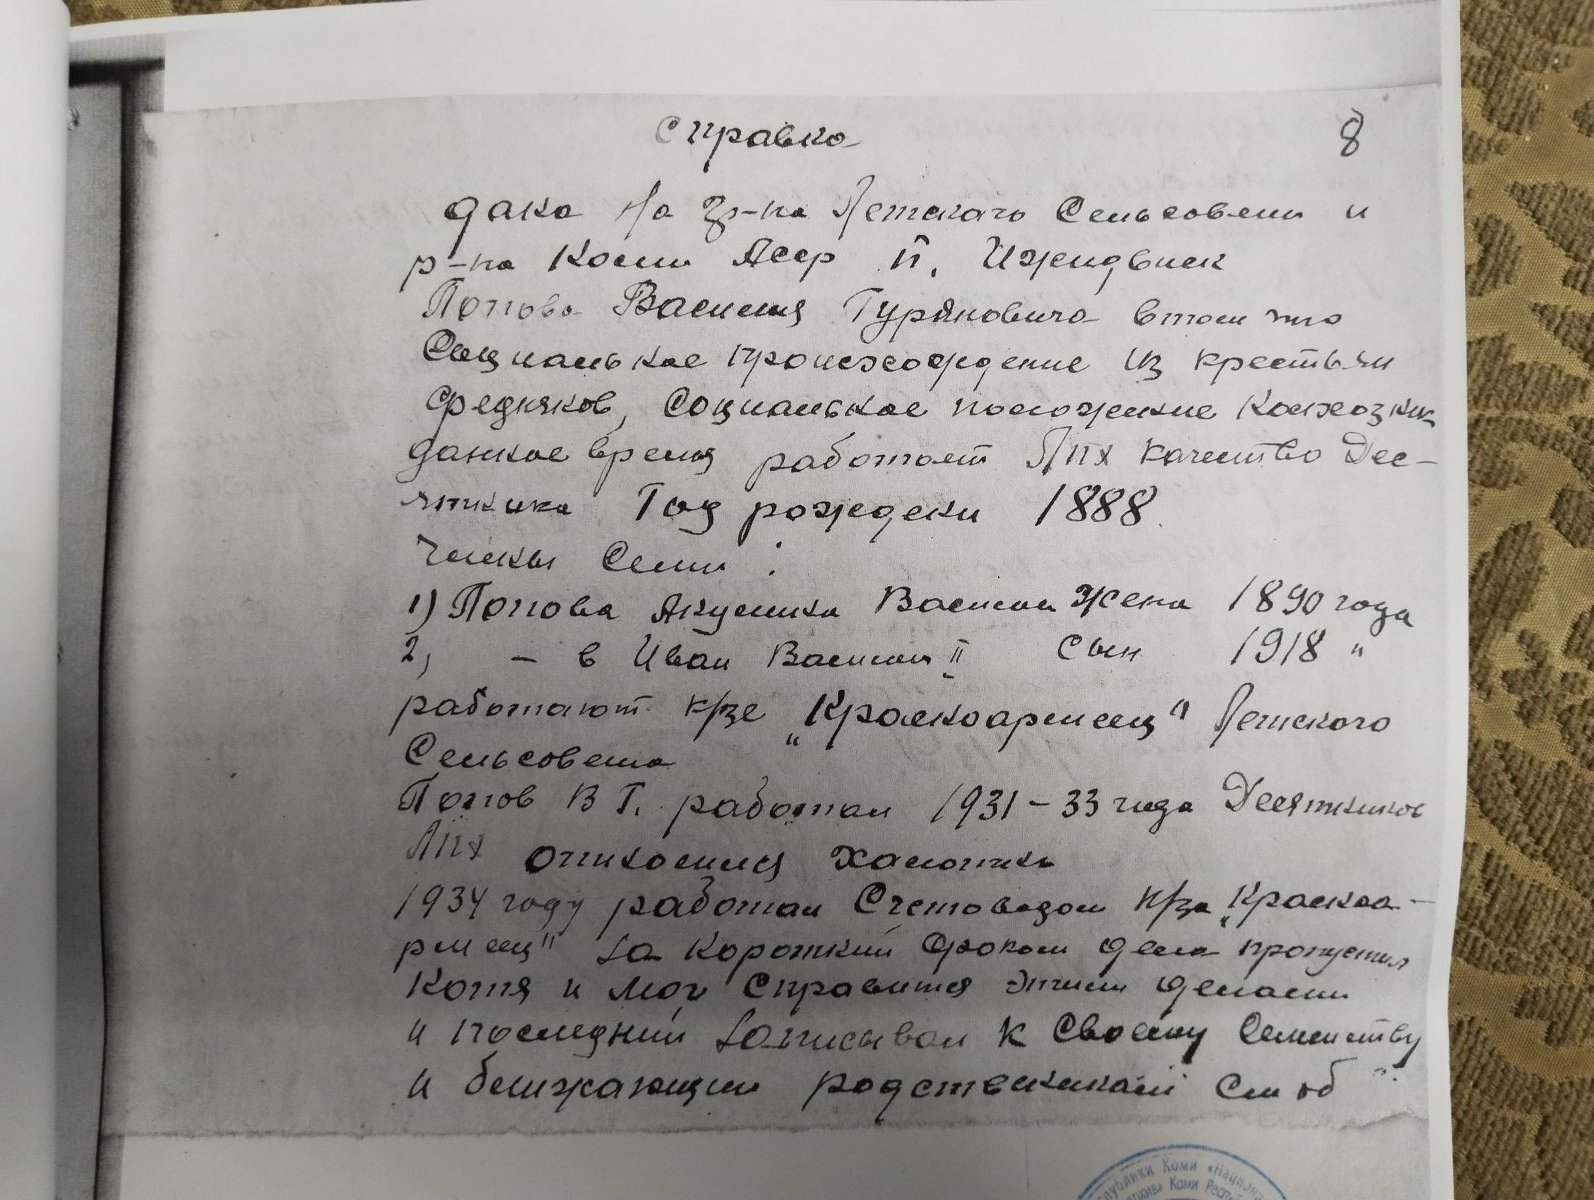 Справка
8
дана на гр-на Летского Сельсовета и
р-на Коми Асср п. Ижендвиск
Попова Василия Гурьяновича в том что
Социальное происхождение из крестьян
средняков, Социальное положение Колхозник
данное время работает Лпх качество Дес-
ятника Год рождени 1888
Члены Семи :
1) Попова Акулина Васильи Жена 1890 года
2, - в Иван Васильи " Сын 1918 "
работают к/зе "Красноармеец" Летского
Сельсовета
Попов В Г. работал 1931-33 года Десятником
Лпх относился халотно
1934 году работал Счетоводом к/за "Красноа-
рмеец" за Короткий сроком дела пропустил
Хотя и мог Справится этими делами
и последний записывал к Своему Семейству
и ближающим родственникам
публики Коми «Национа
архива Коми Респуб